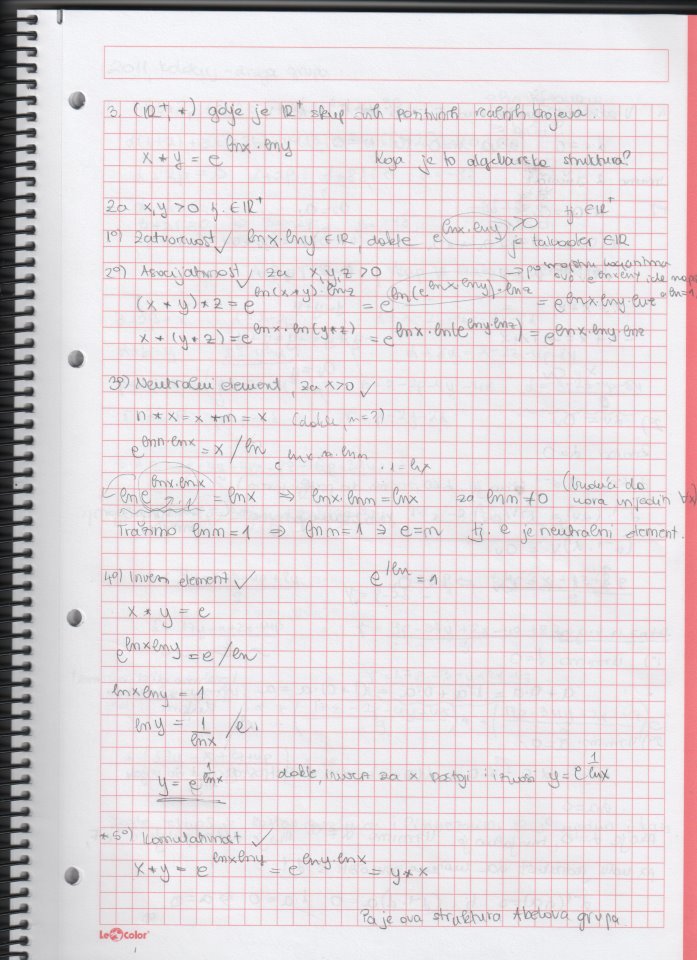 3. (IR⁺, *) gdje je IR⁺ skup svih pozitivnih realnih brojeva.
x * y = e^(lnx·lny) Koja je to algebarska struktura?
Za x,y > 0 tj. ∈ IR⁺
1º) Zatvorenost ✓ lnx·lny ∈ IR, dakle e^(lnx·lny) > 0 tj. ∈ IR⁺
je također ∈ IR
2º) Asocijativnost ✓ za x,y,z > 0 → po svojstvu logaritma
(x * y) * z = e^(ln(x*y)·lnz) = e^(ln(e^(lnx·lny))·lnz) = e^(lnx·lny·lnz)
x * (y * z) = e^(lnx·ln(y*z)) = e^(lnx·ln(e^(lny·lnz))) = e^(lnx·lny·lnz)
3º) Neutralni element, za x>0 ✓
n * x = x * n = x (dakle, n=?)
e^(lnn·lnx) = x /ln
lne^(lnx·lnx) = lnx ⇒ lnx·lnn = lnx za lnn ≠ 0 (budući da
mora vrijediti ∀x)
Tražimo lnn = 1 ⇒ lnn = 1 ⇒ e = n tj. e je neutralni element.
4º) Inverzni element ✓ e^(/ln) = 1
x * y = e
e^(lnxlny) = e /ln
lnxlny = 1
lny = 1/lnx /e
y = e^(1/lnx) dakle, inverz za x postoji i iznosi y = e^(1/lnx)
*5º) Komutativnost ✓
x * y = e^(lnxlny) = e^(lny·lnx) = y * x
Pa je ova struktura Abelova grupa.
Le Color